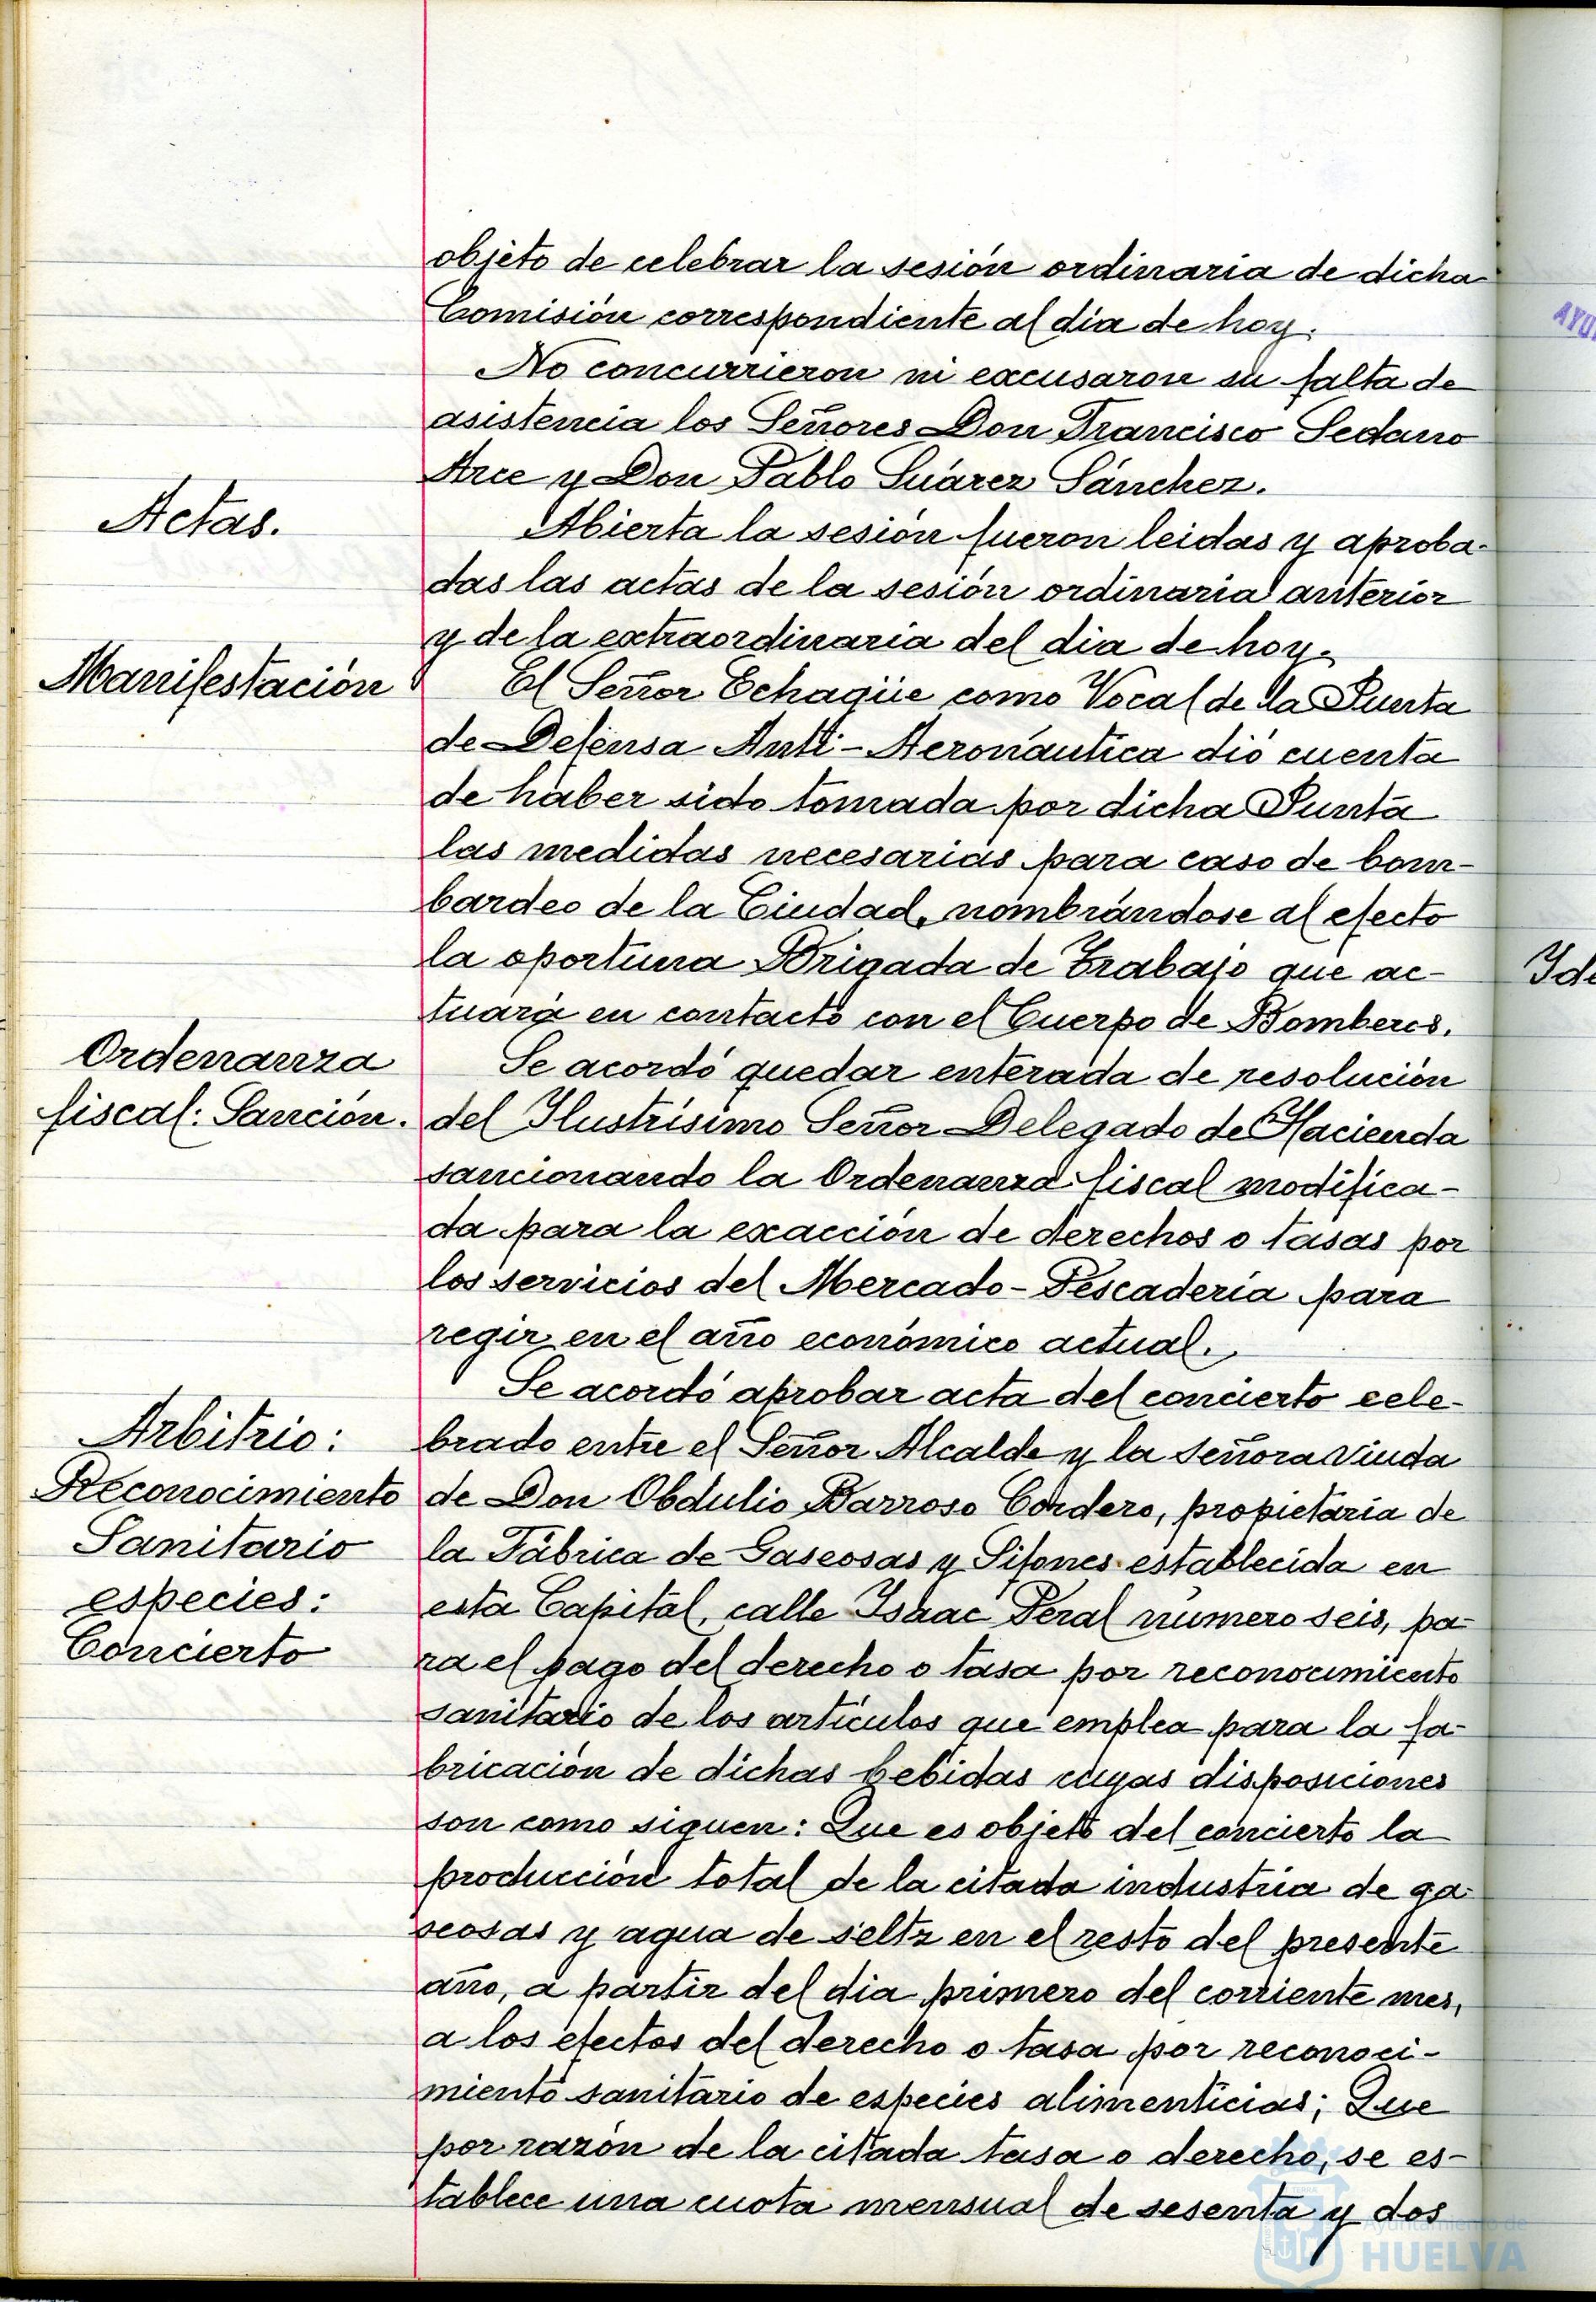 objeto de celebrar la sesión ordinaria de dicha
Comisión correspondiente al dia de hoy.
No concurrieron ni excusaron su falta de
asistencia los Señores Don Francisco Sedano
Arce y Don Pablo Suárez Sánchez.
Actas.
Abierta la sesión fueron leidas y aproba-
das las actas de la sesión ordinaria anterior
y de la extraordinaria del dia de hoy.
Manifestación
El Señor Echagüe como Vocal de la Junta
de Defensa Anti-Aeronáutica dió cuenta
de haber sido tomada por dicha Junta
las medidas necesarias para caso de bom-
bardeo de la Ciudad, nombrándose al efecto
la oportuna Brigada de Trabajo que ac-
tuará en contacto con el Cuerpo de Bomberos.
Ordenanza
fiscal: Sanción.
Se acordó quedar enterada de resolución
del Ilustrísimo Señor Delegado de Hacienda
sancionando la Ordenanza fiscal modifica-
da para la exacción de derechos o tasas por
los servicios del Mercado-Pescadería para
regir en el año económico actual.
Arbitrio:
Reconocimiento
Sanitario
especies:
Concierto
Se acordó aprobar acta del concierto cele-
brado entre el Señor Alcalde y la señora viuda
de Don Obdulio Barroso Cordero, propietaria de
la Fábrica de Gaseosas y Sifones establecida en
esta Capital, calle Isaac Peral número seis, pa-
ra el pago del derecho o tasa por reconocimiento
sanitario de los artículos que emplea para la fa-
bricación de dichas bebidas cuyas disposiciones
son como siguen: Que es objeto del concierto la
producción total de la citada industria de ga-
seosas y agua de seltz en el resto del presente
año, a partir del dia primero del corriente mes,
a los efectos del derecho o tasa por reconoci-
miento sanitario de especies alimenticias; Que
por razón de la citada tasa o derecho, se es-
tablece una cuota mensual de sesenta y dos
Ayuntamiento de
HUELVA